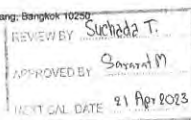 ang, Bangkok 10250
REVIEW BY Suchada T.
APPROVED BY Sararat M
NEXT CAL. DATE 21 Apr 2023